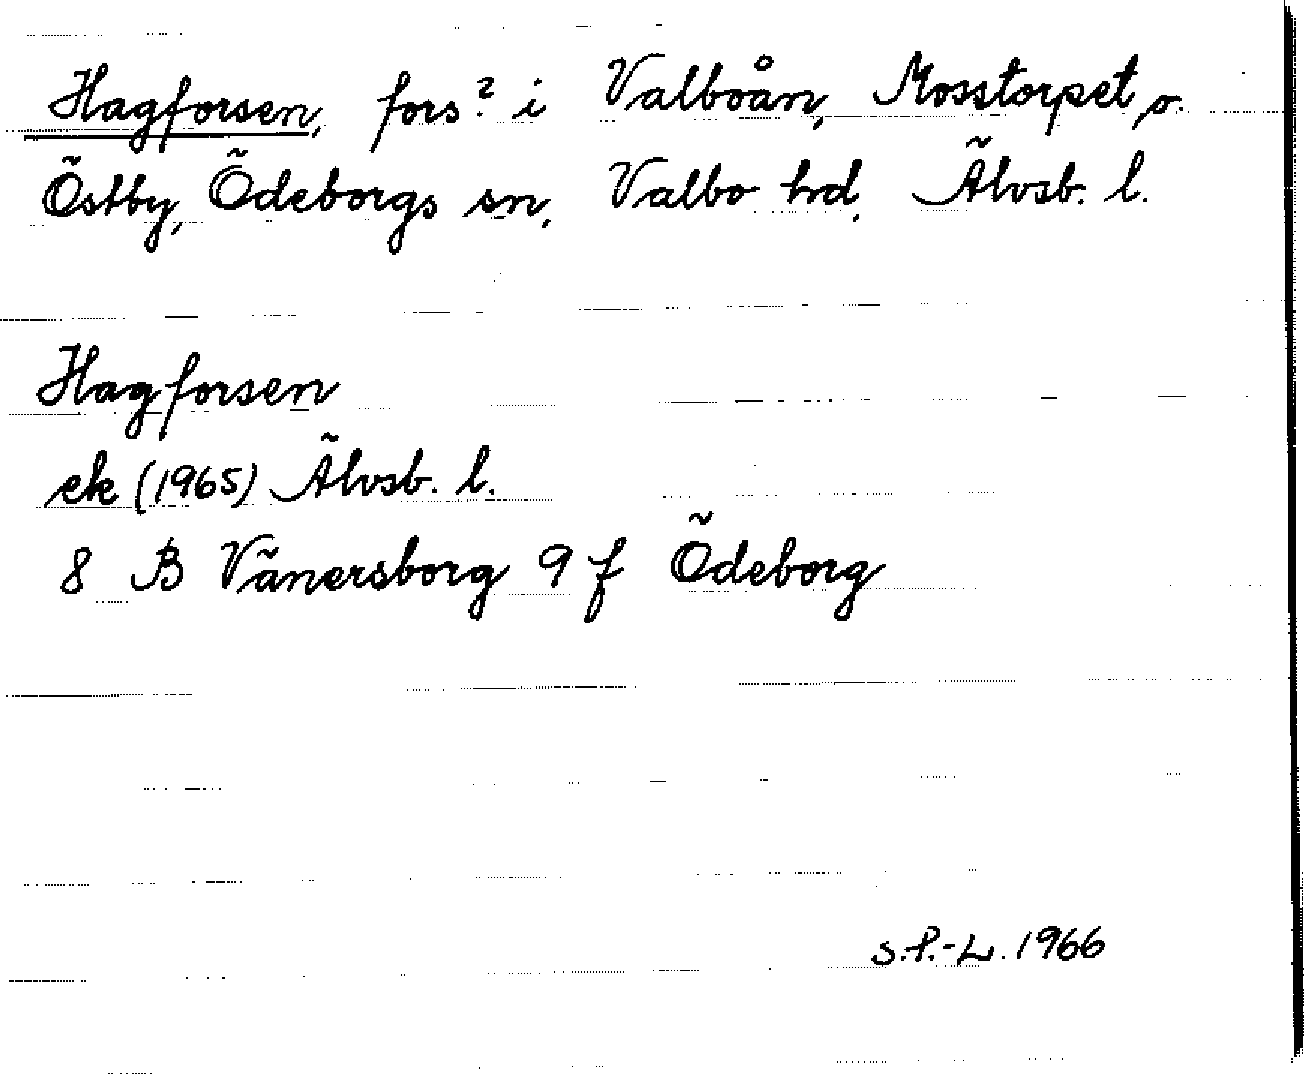 Hagforsen, fors? i Valboån, Mosstorpet, o.
Östby, Ödeborgs sn, Valbo hd, Älvsb. l.
Hagforsen
ek (1965) Älvsb. l.
8 B Vänersborg 9 f Ödeborg
S.P.-L. 1966